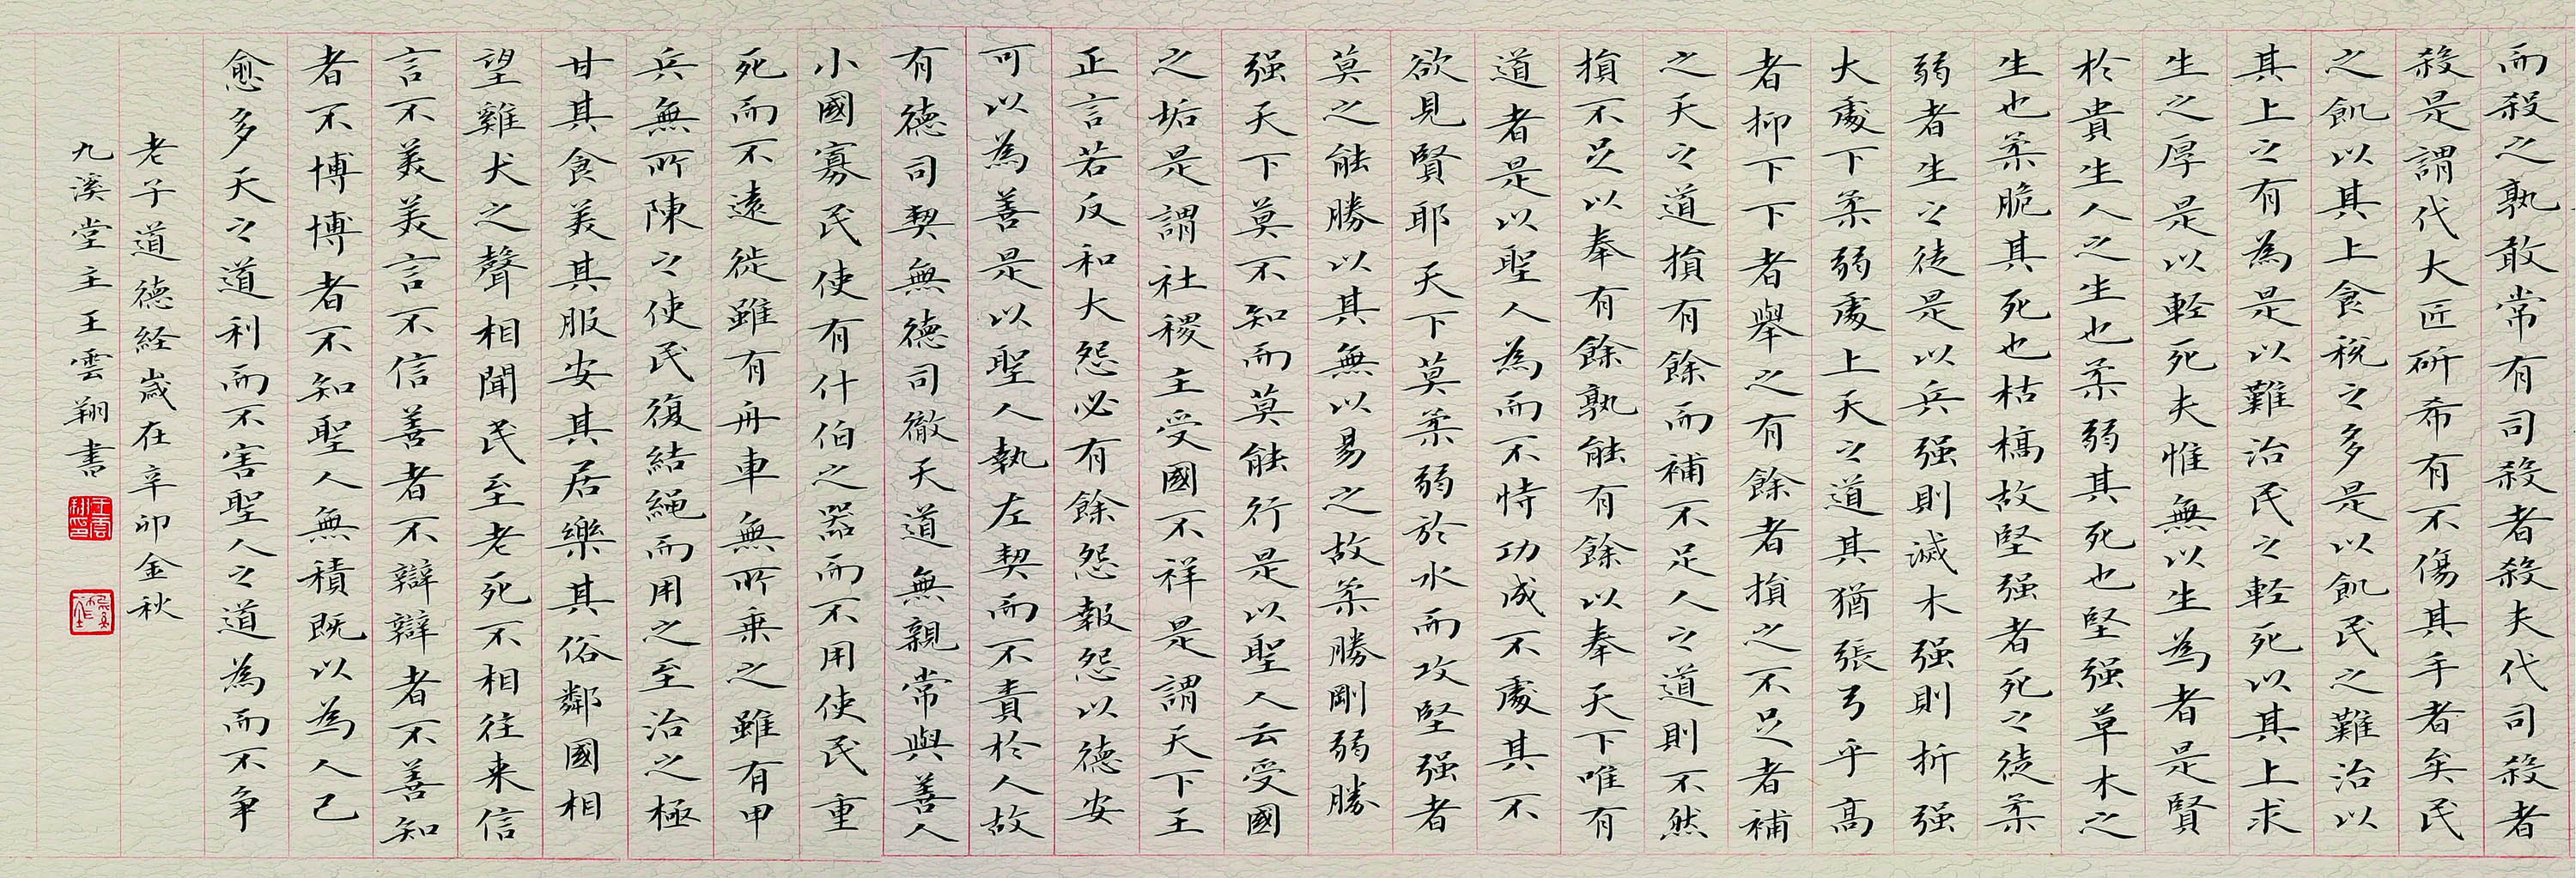 而殺之孰敢常有司殺者殺夫代司殺者
殺是謂代大匠斫希有不傷其手者矣民
之飢以其上食稅之多是以飢民之難治以
其上之有為是以難治民之輕死以其上求
生之厚是以輕死夫惟無以生為者是賢
於貴生人之生也柔弱其死也堅强草木之
生也柔脆其死也枯槁故堅强者死之徒柔
弱者生之徒是以兵强則滅木强則折强
大處下柔弱處上天之道其猶張弓乎高
者抑下下者舉之有餘者損之不足者補
之天之道損有餘而補不足人之道則不然
損不足以奉有餘孰能有餘以奉天下唯有
道者是以聖人為而不恃功成不處其不
欲見賢耶天下莫柔弱於水而攻堅强者
莫之能勝以其無以易之故柔勝剛弱勝
强天下莫不知而莫能行是以聖人云受國
之垢是謂社稷主受國不祥是謂天下王
正言若反和大怨必有餘怨報怨以德安
可以為善是以聖人執左契而不責於人故
有德司契無德司徹天道無親常與善人
小國寡民使有什伯之器而不用使民重
死而不遠徙雖有舟車無所乘之雖有甲
兵無所陳之使民復結繩而用之至治之極
甘其食美其服安其居樂其俗鄰國相
望雞犬之聲相聞民至老死不相往来信
言不美美言不信善者不辯辯者不善知
者不博博者不知聖人無積既以為人己
愈多天之道利而不害聖人之道為而不争
老子道德経歲在辛卯金秋
九溪堂主王雲翔書